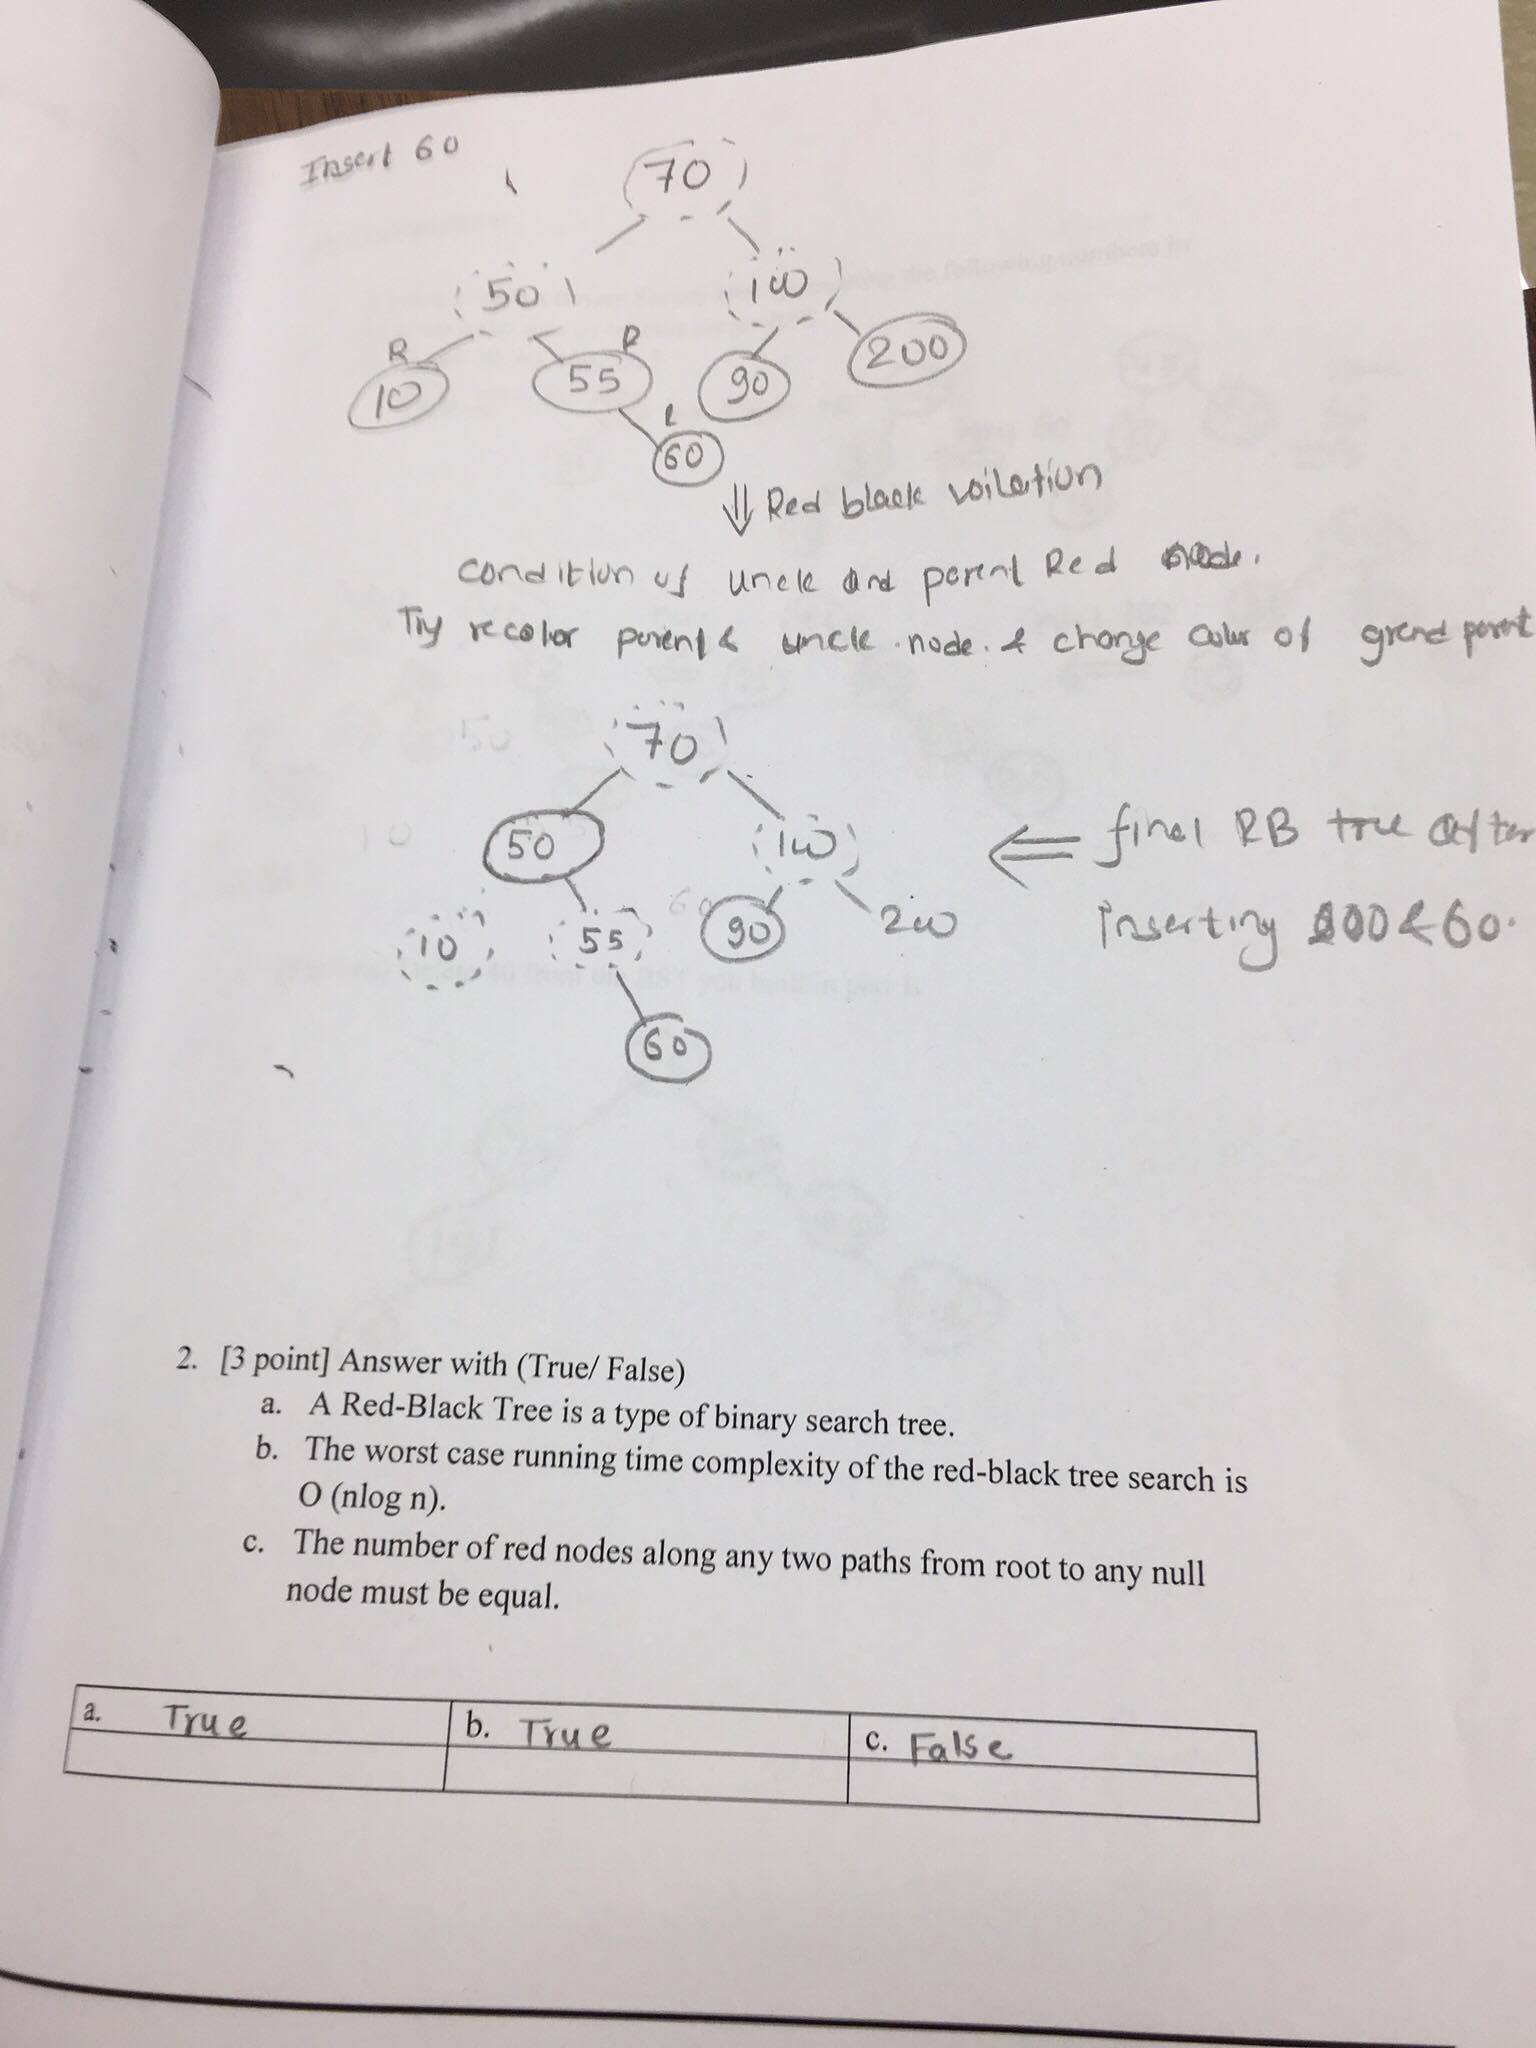 Insert 60
70
50
100
R
R
10
55
90
200
R
60
Red black voilation
condition of uncle and parent Red node.
Try recolor parent & uncle node. & change color of grand parent
70
50
100
final RB tree after
10
55
90
200
inserting 200 & 60.
60
2. [3 point] Answer with (True/ False)
a. A Red-Black Tree is a type of binary search tree.
b. The worst case running time complexity of the red-black tree search is
O (nlog n).
c. The number of red nodes along any two paths from root to any null
node must be equal.
a. True b. True c. False